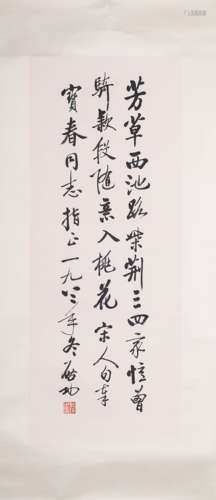 芳草西池路柴荆三四家憶曾
騎款段随意入桃花宋人句奉
寶春同志指正一九八三年冬啓功